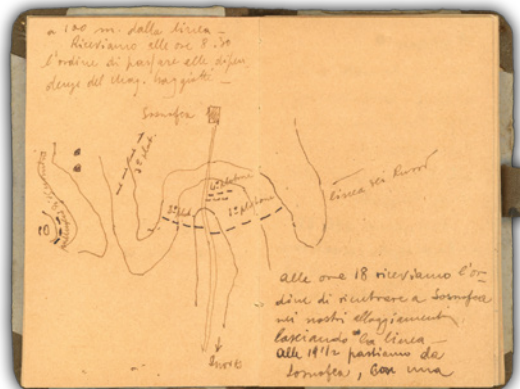 a 100 m. dalla linea -
Riceviamo alle ore 8.30
l'ordine di passare alle dipen
denze del Mag.
Sosnofca
3° plot.
4° plotone
3° plot.
1° plotone
linea dei Russi
10
alle ore 18 riceviamo l'or-
dine di rientrare a Sosnofca
nei nostri alloggiamenti
lasciando la linea -
alle 19 1/2 partiamo da
Sosnofca, con una